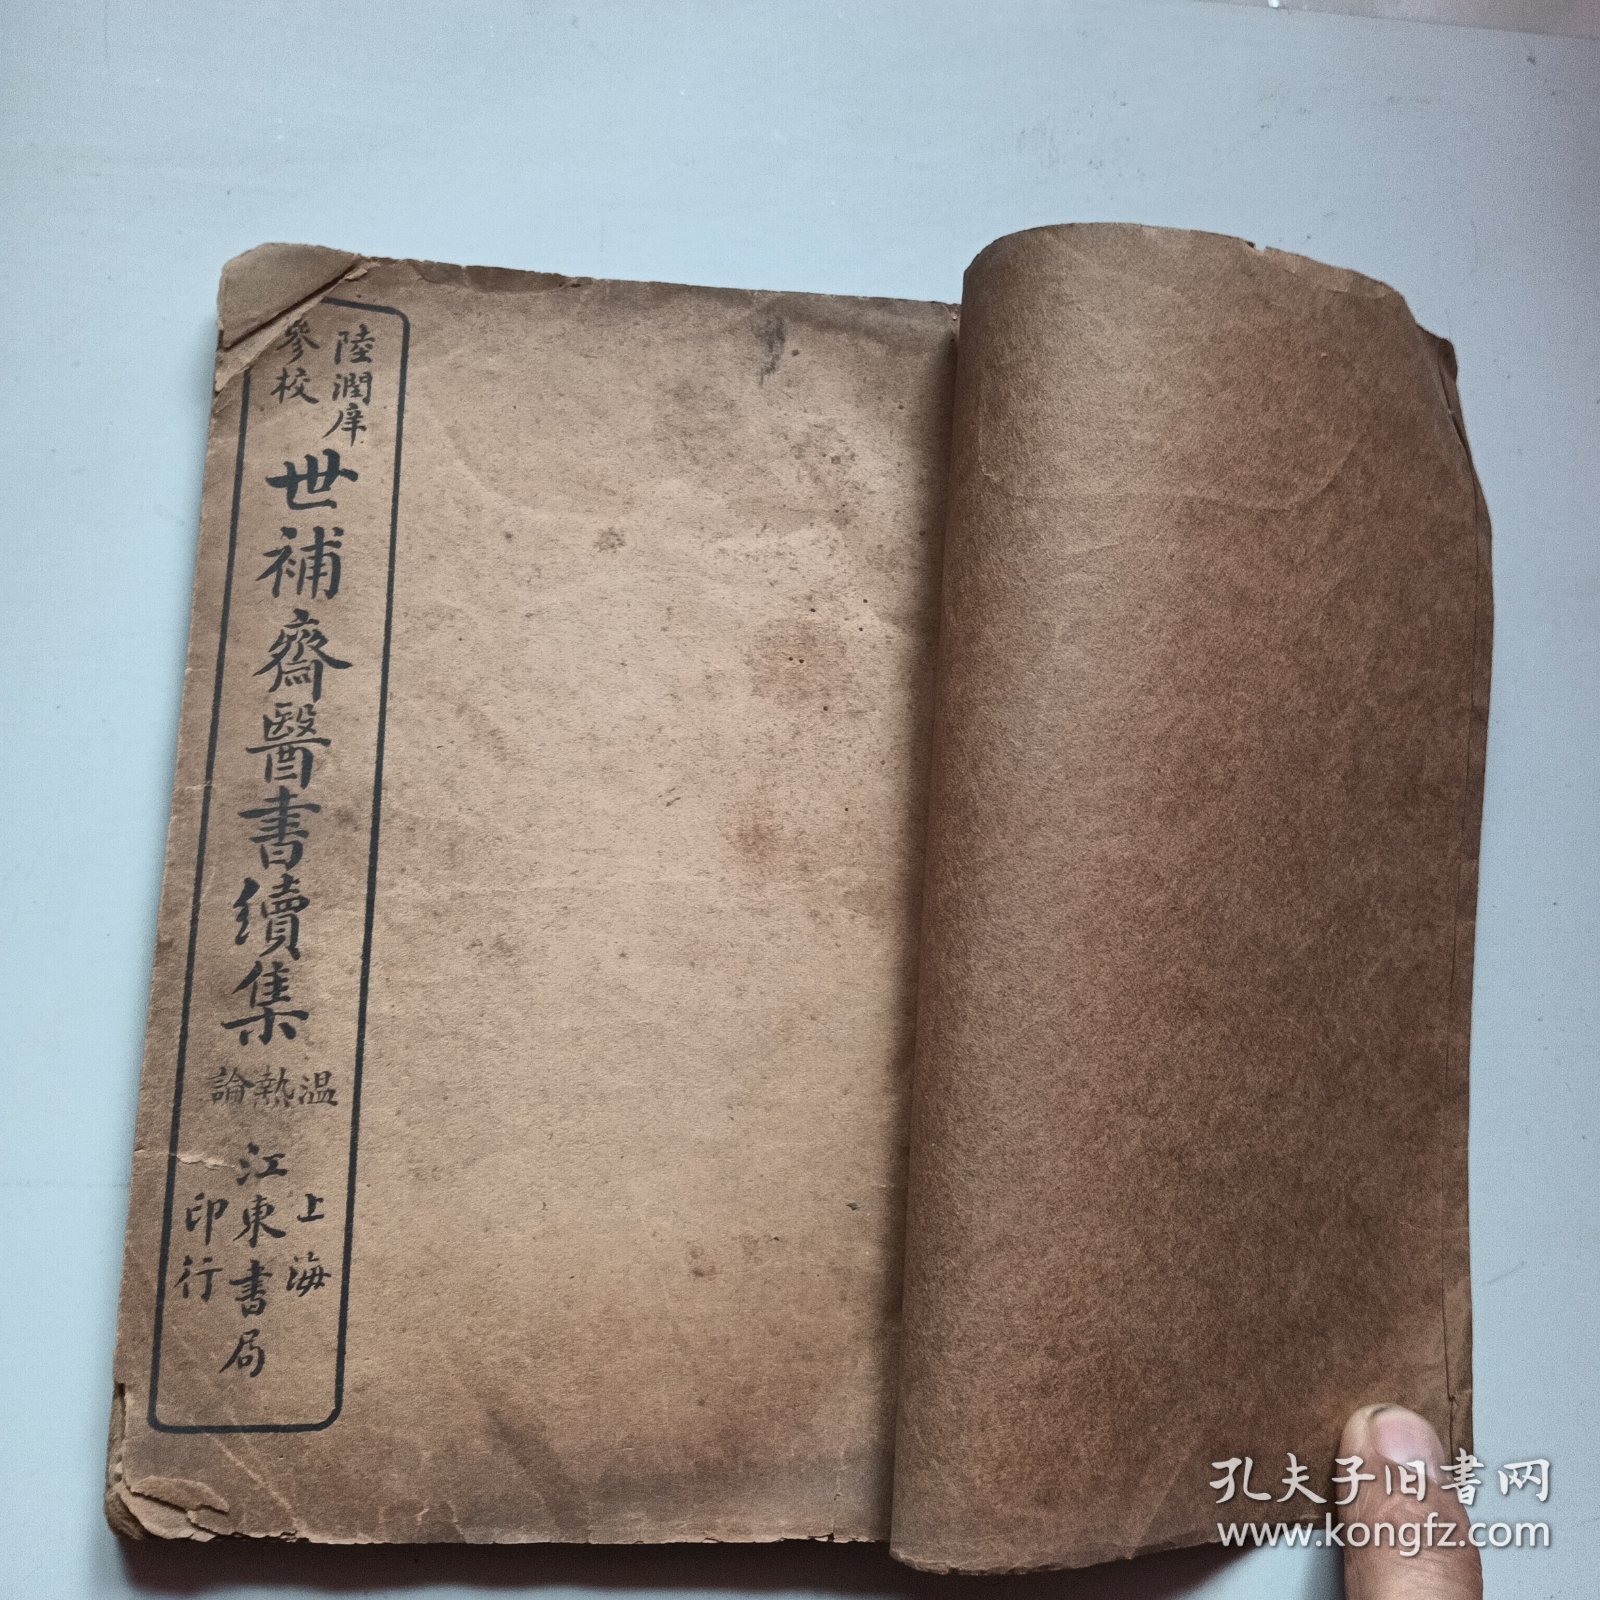 陸潤庠
參校
世補齋醫書續集
温熱論
上海
江東書局
印行
孔夫子旧书网
www.kongfz.com